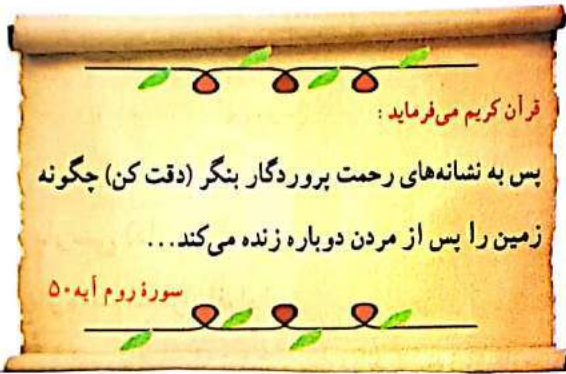 قرآن کریم می‌فرماید :
پس به نشانه‌های رحمت پروردگار بنگر (دقت کن) چگونه
زمین را پس از مردن دوباره زنده می‌کند...
سورهٔ روم آیه ۵۰